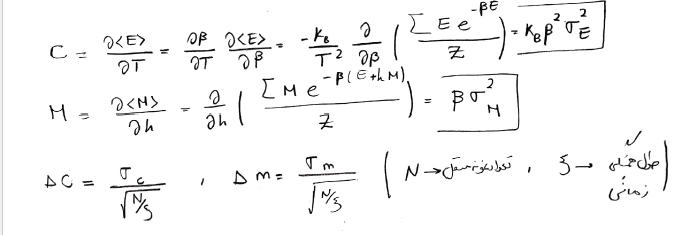 C = ∂<E>/∂T = ∂β/∂T ∂<E>/∂β = -K_B/T² ∂/∂β (∑ E e^{-βE} / Z) = K_B β² σ_E²
M = ∂<M>/∂h = ∂/∂h (∑ M e^{-β(E+hM)} / Z) = β σ_M²
ΔC = σ_c / √(N/ξ) , Δm = σ_m / √(N/ξ) ( N → تعداد نمونه مستقل , ξ → طول همبستگی ✓
زمانی )